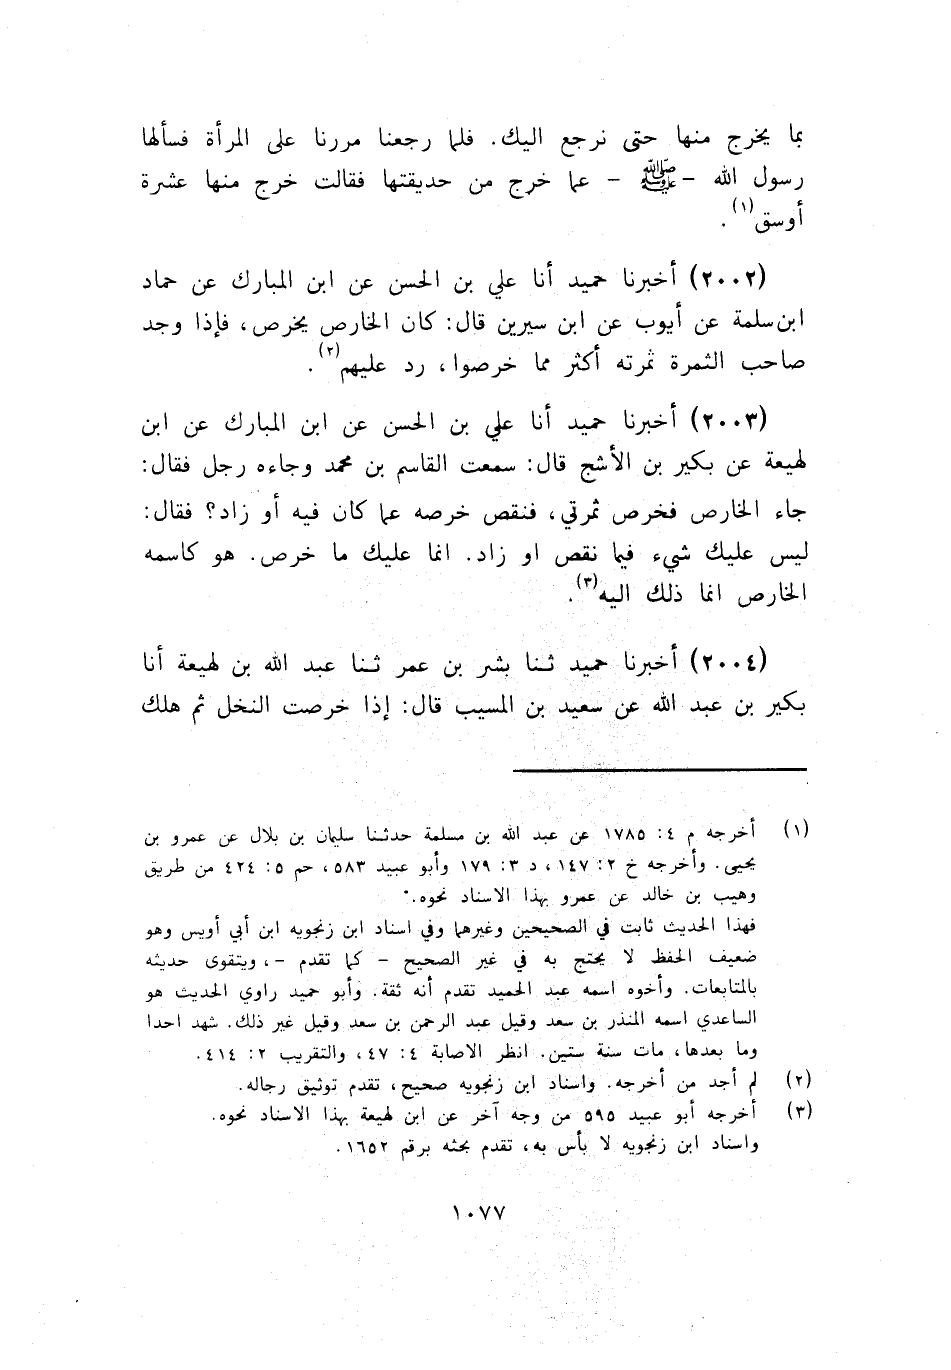 بما يخرج منها حتى نرجع اليك. فلما رجعنا مررنا على المرأة فسألها
رسول الله - ﷺ - عما خرج من حديقتها فقالت خرج منها عشرة
أوسق(١).
(٢٠٠٢) أخبرنا حميد أنا علي بن الحسن عن ابن المبارك عن حماد
ابن سلمة عن أيوب عن ابن سيرين قال: كان الخارص يخرص، فإذا وجد
صاحب الثمرة ثمرته أكثر مما خرصوا، رد عليهم(٢).
(٢٠٠٣) أخبرنا حميد أنا علي بن الحسن عن ابن المبارك عن ابن
لهيعة عن بكير بن الأشج قال: سمعت القاسم بن محمد وجاءه رجل فقال:
جاء الخارص فخرص ثمرتي، فنقص خرصه عما كان فيه أو زاد؟ فقال:
ليس عليك شيء فيما نقص او زاد. انما عليك ما خرص. هو كاسمه
الخارص انما ذلك اليه(٣).
(٢٠٠٤) أخبرنا حميد ثنا بشر بن عمر ثنا عبد الله بن لهيعة أنا
بكير بن عبد الله عن سعيد بن المسيب قال: إذا خرصت النخل ثم هلك
(١) أخرجه م ٤: ١٧٨٥ عن عبد الله بن مسلمة حدثنا سليمان بن بلال عن عمرو بن
يحيى. وأخرجه خ ٢: ١٤٧، د ٣: ١٧٩ وأبو عبيد ٥٨٣، حم ٥: ٤٢٤ من طريق
وهيب بن خالد عن عمرو بهذا الاسناد نحوه.
فهذا الحديث ثابت في الصحيحين وغيرهما وفي اسناد ابن زنجويه ابن أبي أويس وهو
ضعيف الحفظ لا يحتج به في غير الصحيح - كما تقدم -، ويتقوى حديثه
بالمتابعات. وأخوه اسمه عبد الحميد تقدم أنه ثقة. وأبو حميد راوي الحديث هو
الساعدي اسمه المنذر بن سعد وقيل عبد الرحمن بن سعد وقيل غير ذلك. شهد احدا
وما بعدها، مات سنة ستين. انظر الاصابة ٤: ٤٧، والتقريب ٢: ٤١٤.
(٢) لم أجد من أخرجه. واسناد ابن زنجويه صحيح، تقدم توثيق رجاله.
(٣) أخرجه أبو عبيد ٥٩٥ من وجه آخر عن ابن لهيعة بهذا الاسناد نحوه.
واسناد ابن زنجويه لا بأس به، تقدم بحثه برقم ١٦٥٢.
١٠٧٧